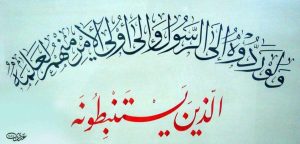 ولو ردوه إلى الرسول وإلى أولي الأمر منهم لعلمه
الذين يستنبطونه